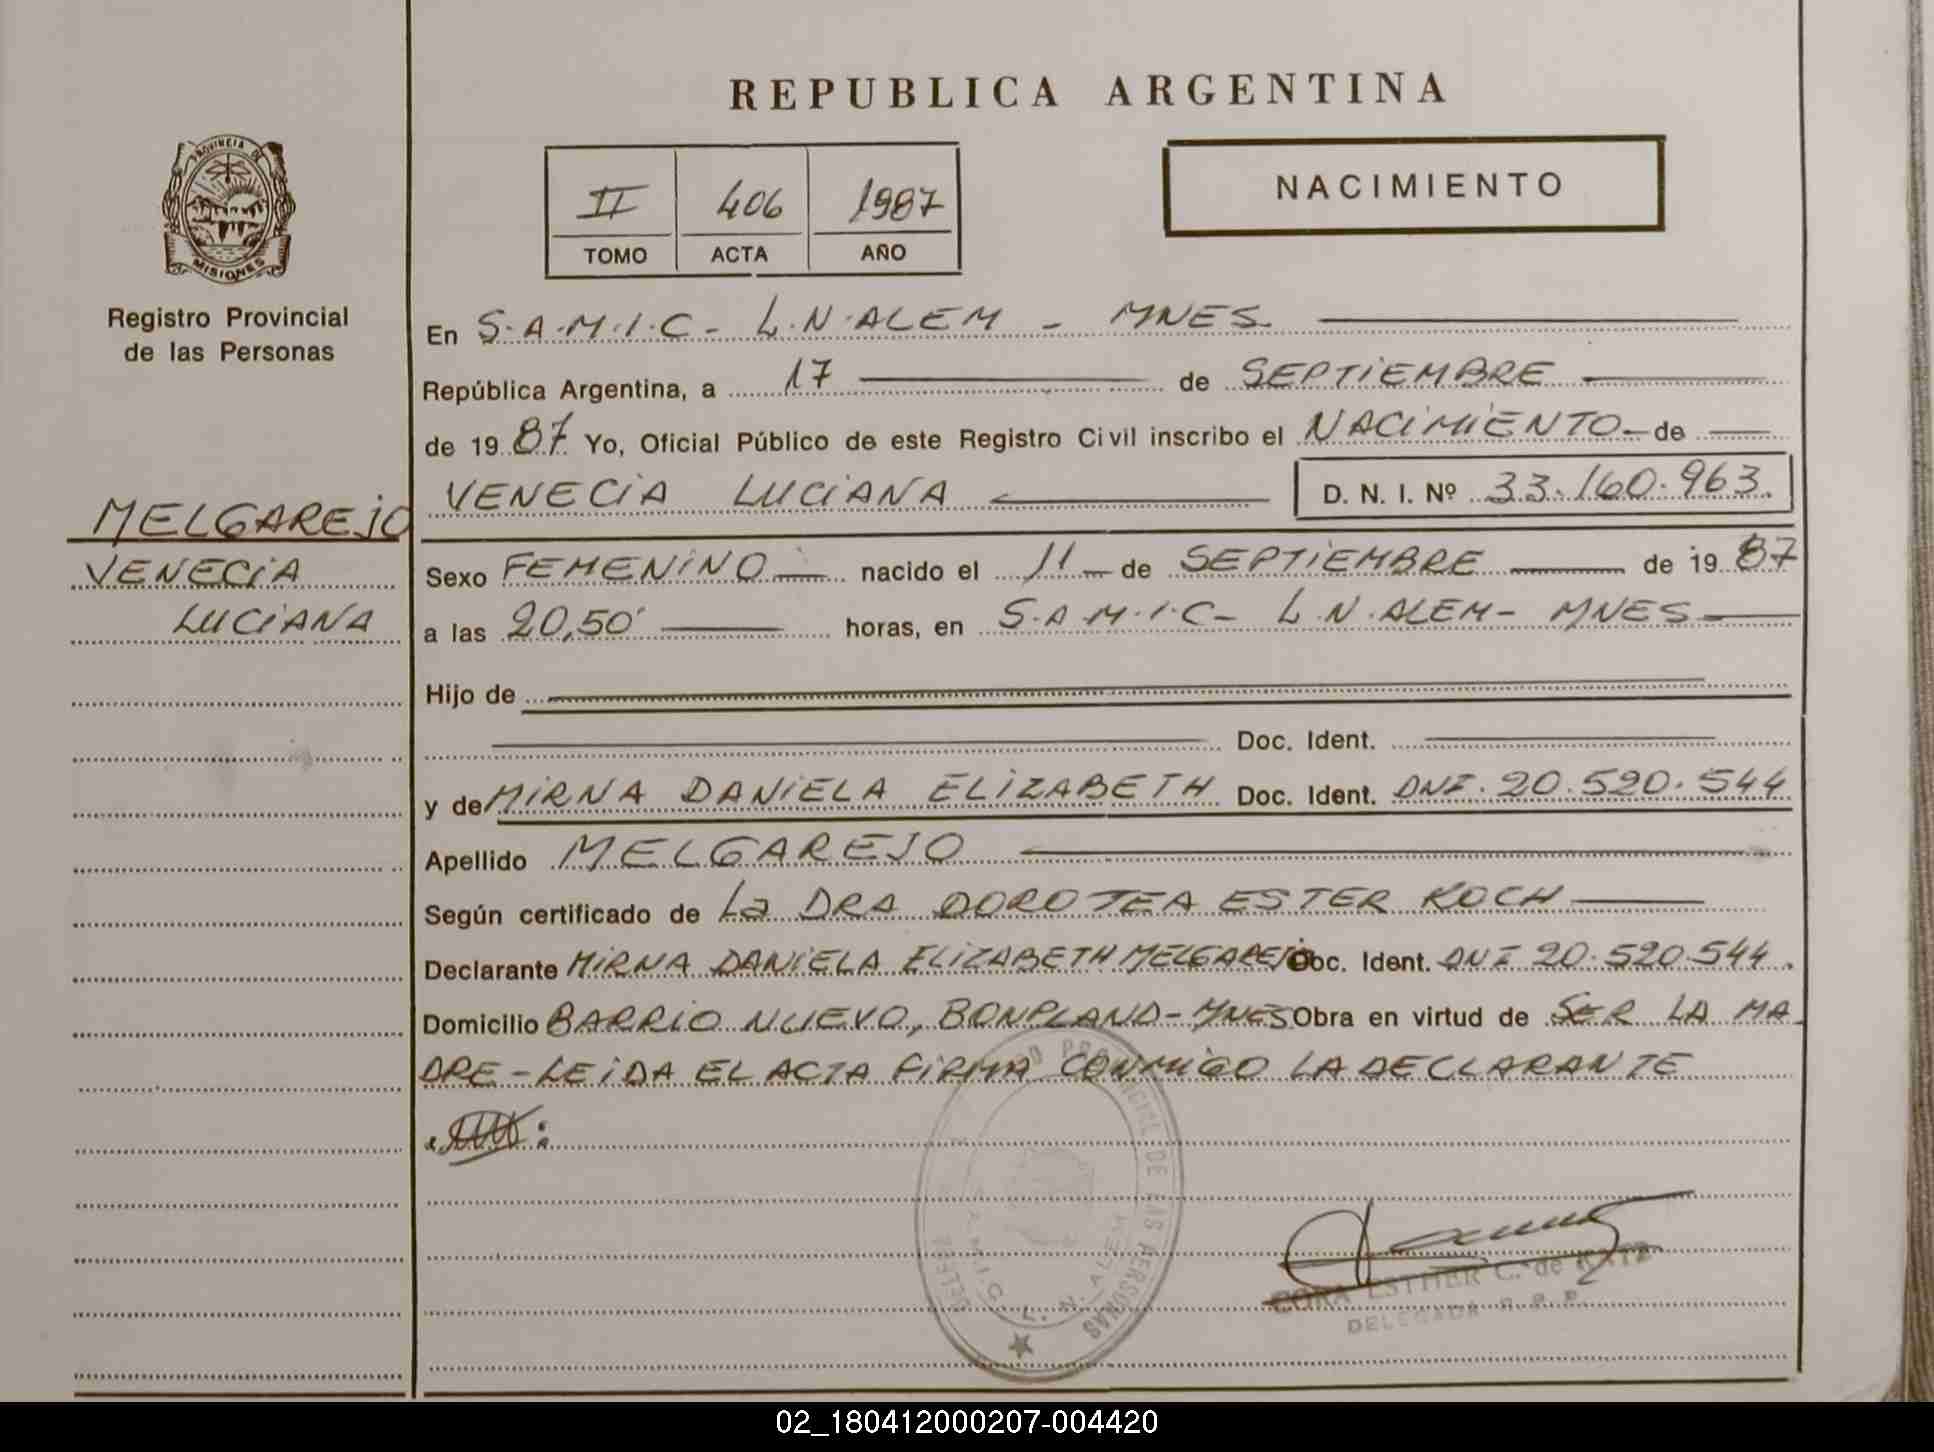 REPUBLICA ARGENTINA
PROVINCIA DE
MISIONES
Registro Provincial
de las Personas
II 406 1987
TOMO ACTA AÑO
NACIMIENTO
En S.A.M.I.C- L.N.ALEM - MNES.
República Argentina, a 17 de SEPTIEMBRE
de 1987 Yo, Oficial Público de este Registro Civil inscribo el NACIMIENTO de
VENECIA LUCIANA D. N. I. Nº 33.160.963.
MELGAREJO
VENECIA
LUCIANA
Sexo FEMENINO nacido el 11 de SEPTIEMBRE de 1987
a las 20,50' horas, en S.A.M.I.C- L.N.ALEM- MNES
Hijo de
Doc. Ident.
y de MIRNA DANIELA ELIZABETH Doc. Ident. DNI. 20.520.544
Apellido MELGAREJO
Según certificado de La DRA DOROTEA ESTER KOCH
Declarante MIRNA DANIELA ELIZABETH MELGAREJO Doc. Ident. DNI 20.520.544.
Domicilio BARRIO NUEVO, BONPLAND-MNES Obra en virtud de SER LA MA-
DRE-LEIDA EL ACTA FIRMA CONMIGO LA DECLARANTE
PROVINCIAL DE LAS PERSONAS
S.A.M.I.C. L.N. ALEM
ESTHER C. de KATZ
DELEGADA R.R.P.
02_180412000207-004420